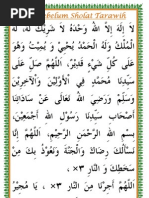 belum Sholat Tarawih
لَا إِلٰهَ إِلَّا اللهُ وَحْدَهُ لَا شَرِيْكَ لَهُ، لَهُ
الْمُلْكُ وَلَهُ الْحَمْدُ يُحْيِيْ وَ يُمِيْتُ وَهُوَ
عَلَى كُلِّ شَيْءٍ قَدِيْرٌ، اَللّٰهُمَّ صَلِّ عَلَى
سَيِّدِنَا مُحَمَّدٍ فِي الْأَوَّلِيْنَ وَالْآخِرِيْنَ
وَسَلِّمْ وَرَضِيَ اللهُ تَعَالَى عَنْ سَادَاتِنَا
أَصْحَابِ سَيِّدِنَا رَسُوْلِ اللهِ أَجْمَعِيْنَ،
بِسْمِ اللهِ الرَّحْمٰنِ الرَّحِيْمِ، اَللّٰهُمَّ إِنَّا
نَسْأَلُكَ رِضَاكَ وَالْجَنَّةَ وَنَعُوْذُ بِكَ مِنْ
سَخَطِكَ وَ النَّارِ ×٣
اَللّٰهُمَّ أَجِرْنَا مِنَ النَّارِ ×٣، يَا مُجِيْرُ